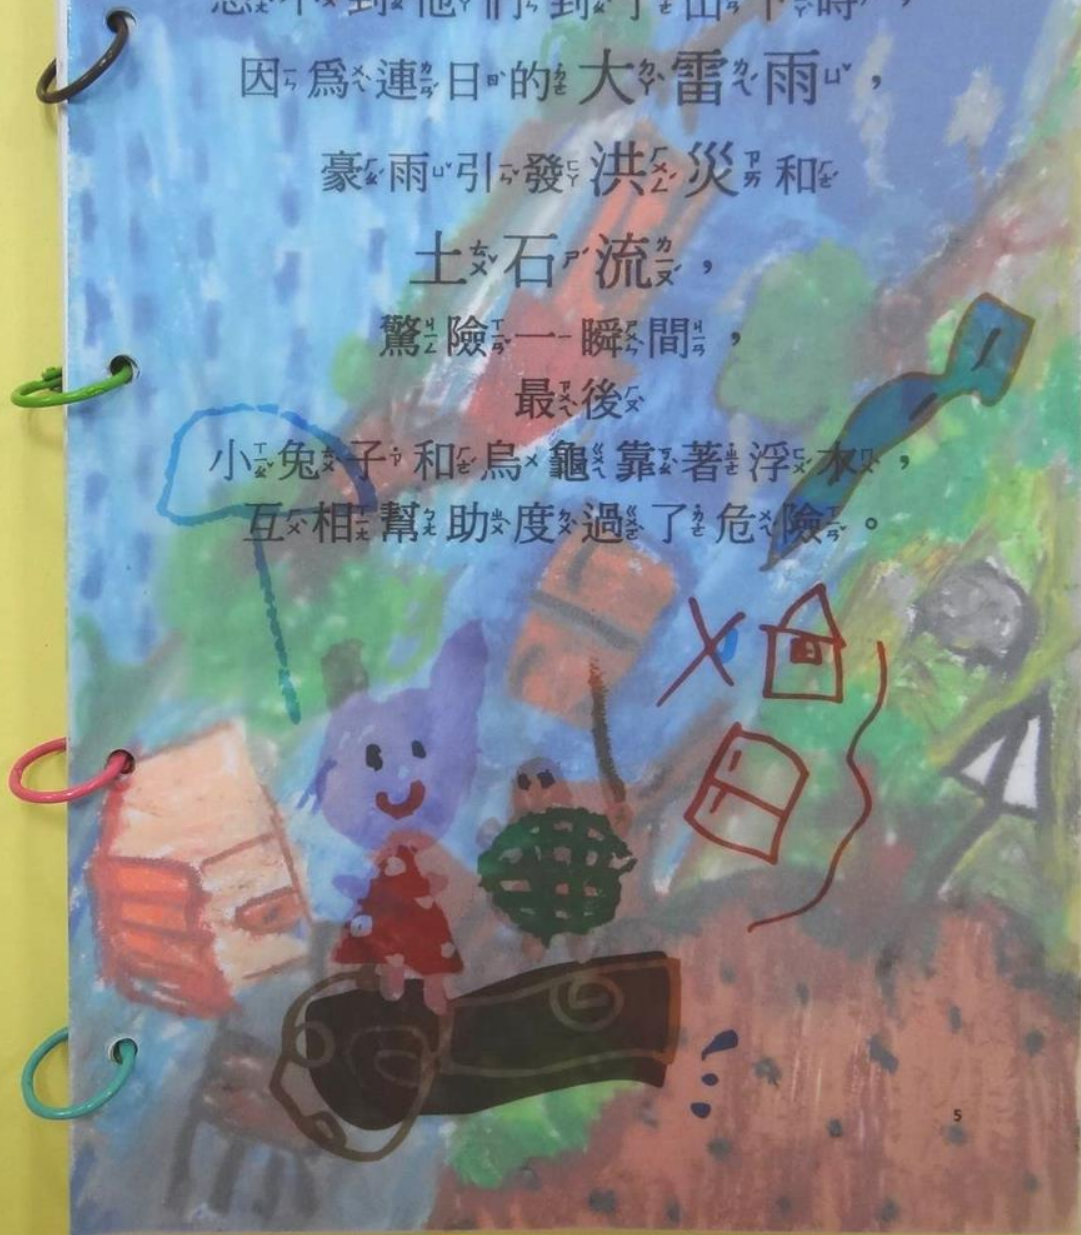 想不到他們到了山下時，
因爲連日的大雷雨，
豪雨引發洪災和
土石流，
驚險一瞬間，
最後
小兔子和烏龜靠著浮木，
互相幫助度過了危險。
5